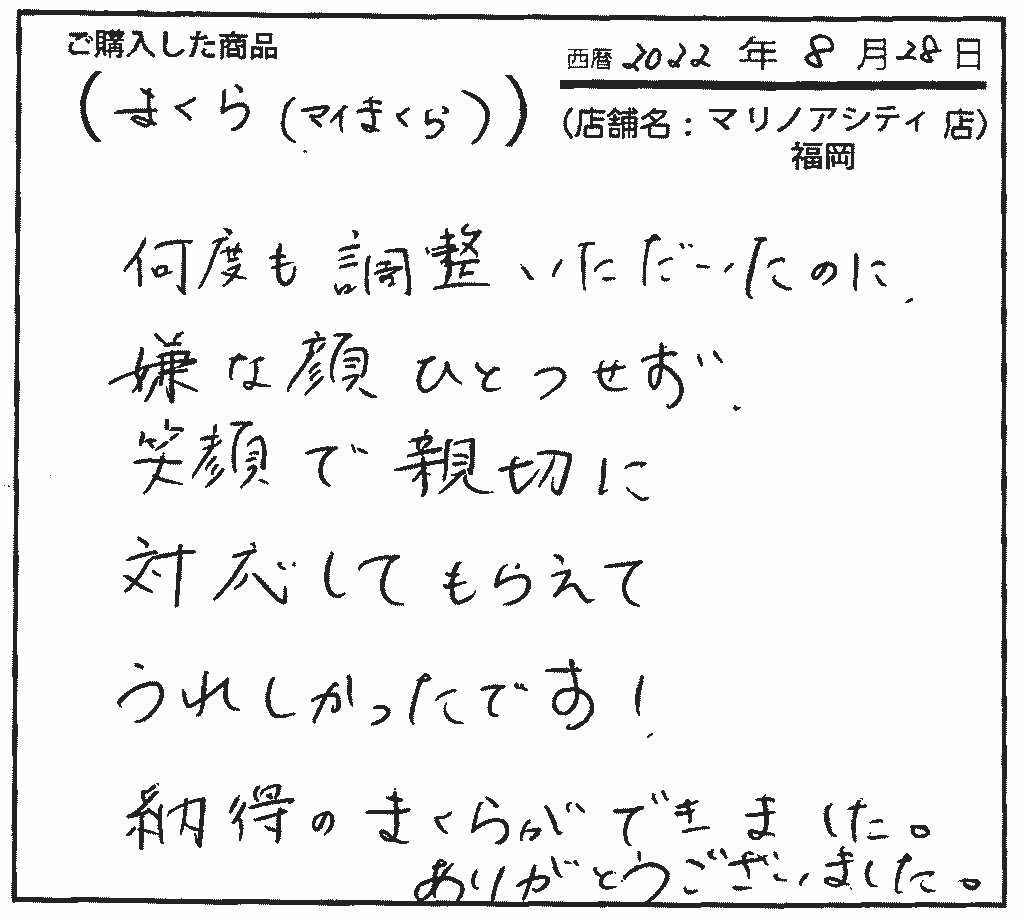 ご購入した商品
(まくら(マイまくら))
西暦2022年8月28日
(店舗名:マリノアシティ 店)
福岡
何度も調整いただいたのに、
嫌な顔ひとつせず、
笑顔で親切に
対応してもらえて
うれしかったです!
納得のまくらができました。
ありがとうございました。